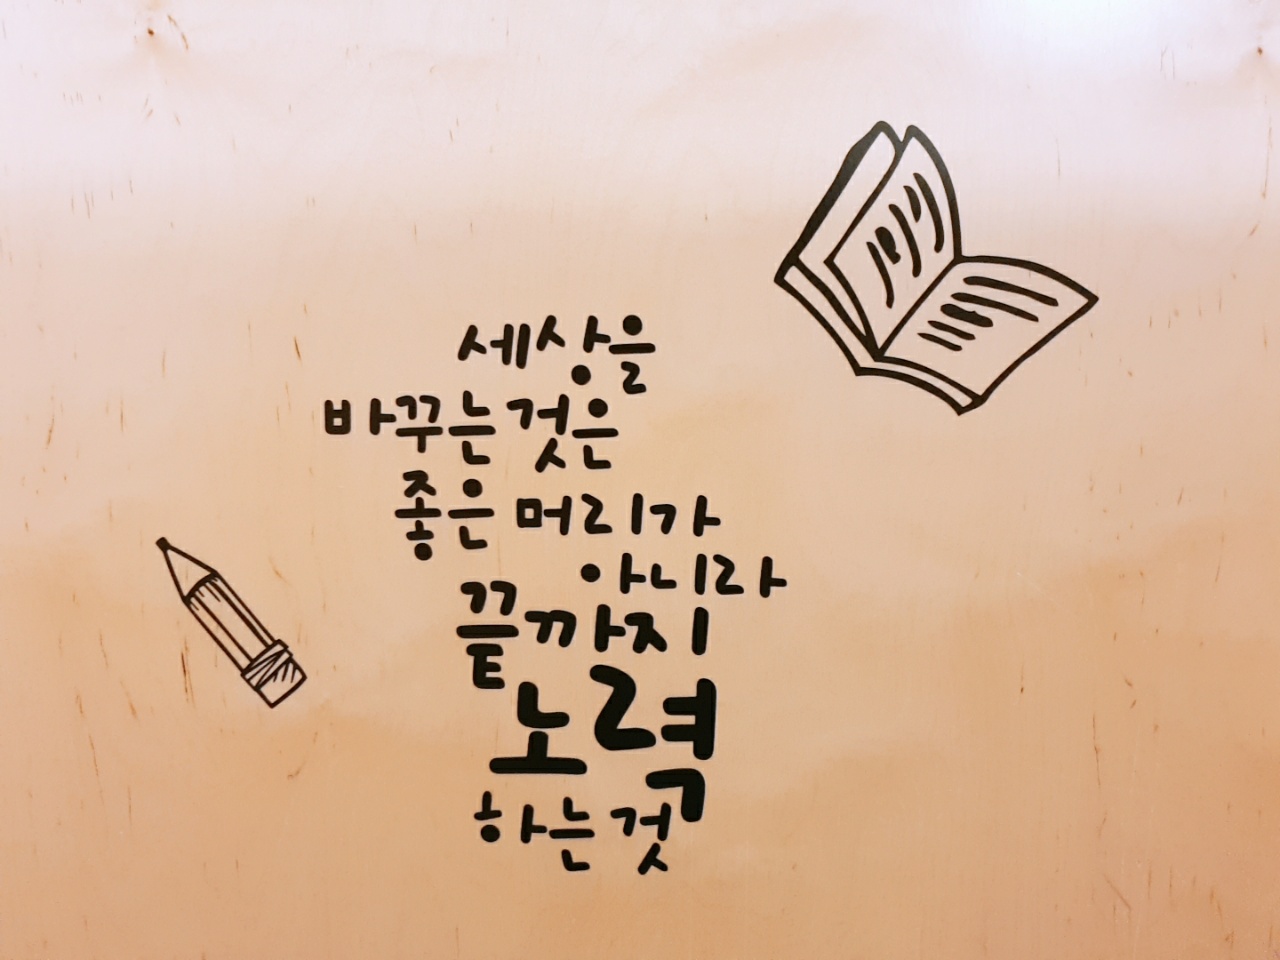 세상을
바꾸는 것은
좋은 머리가
아니라
끝까지
노력
하는 것